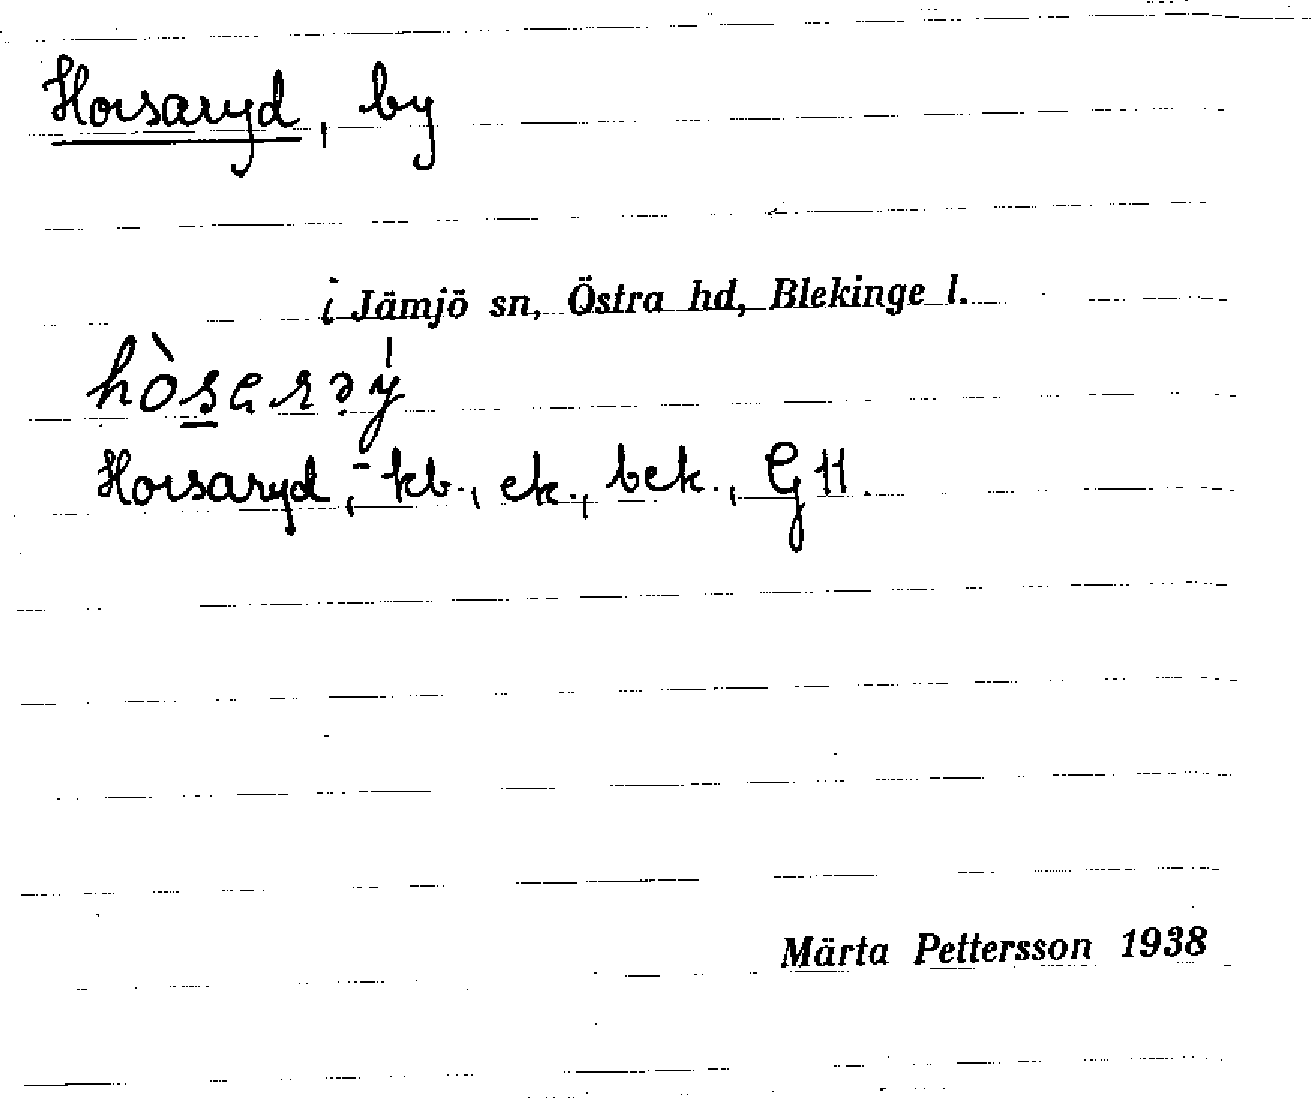 Horsaryd, by
i Jämjö sn, Östra hd, Blekinge l.
Horsaryd, - kb., ek., bek., G 11.
Märta Pettersson 1938